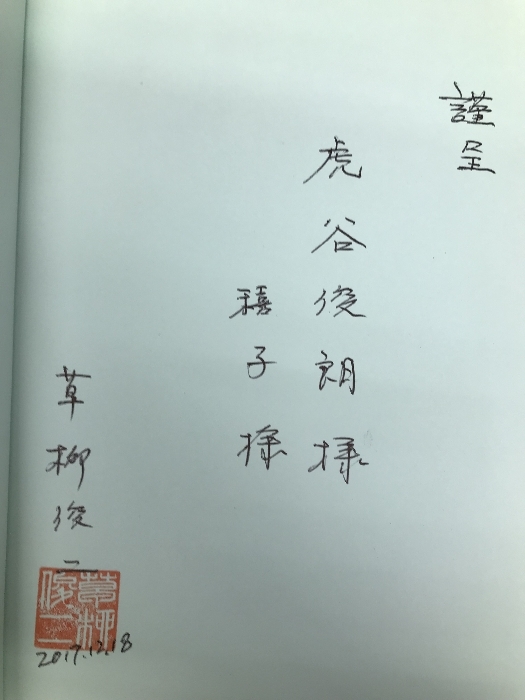 謹呈
虎谷俊朗様
禧子様
草柳俊二
草柳
俊二
2017.12.18